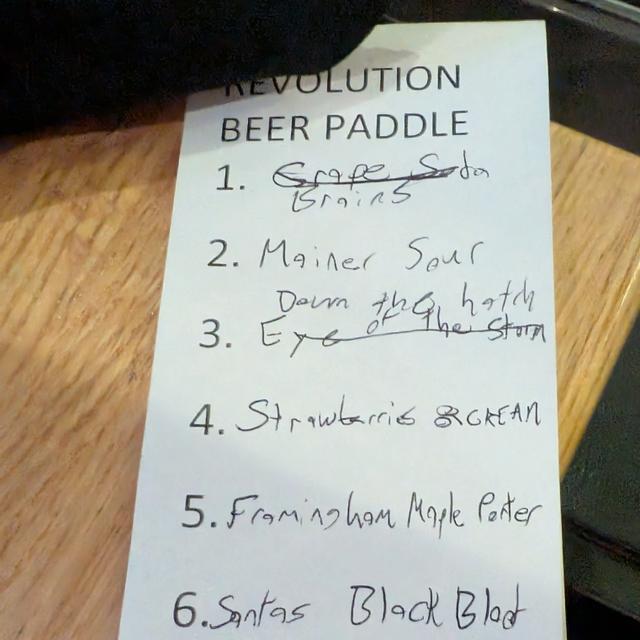 REVOLUTION
BEER PADDLE
1. Grape Soda
Brains
2. Mainer Sour
Down the hatch
3. Eye of the Storm
4. Strawberrie & CREAM
5. Framingham Maple Porter
6. Santas Black Blood